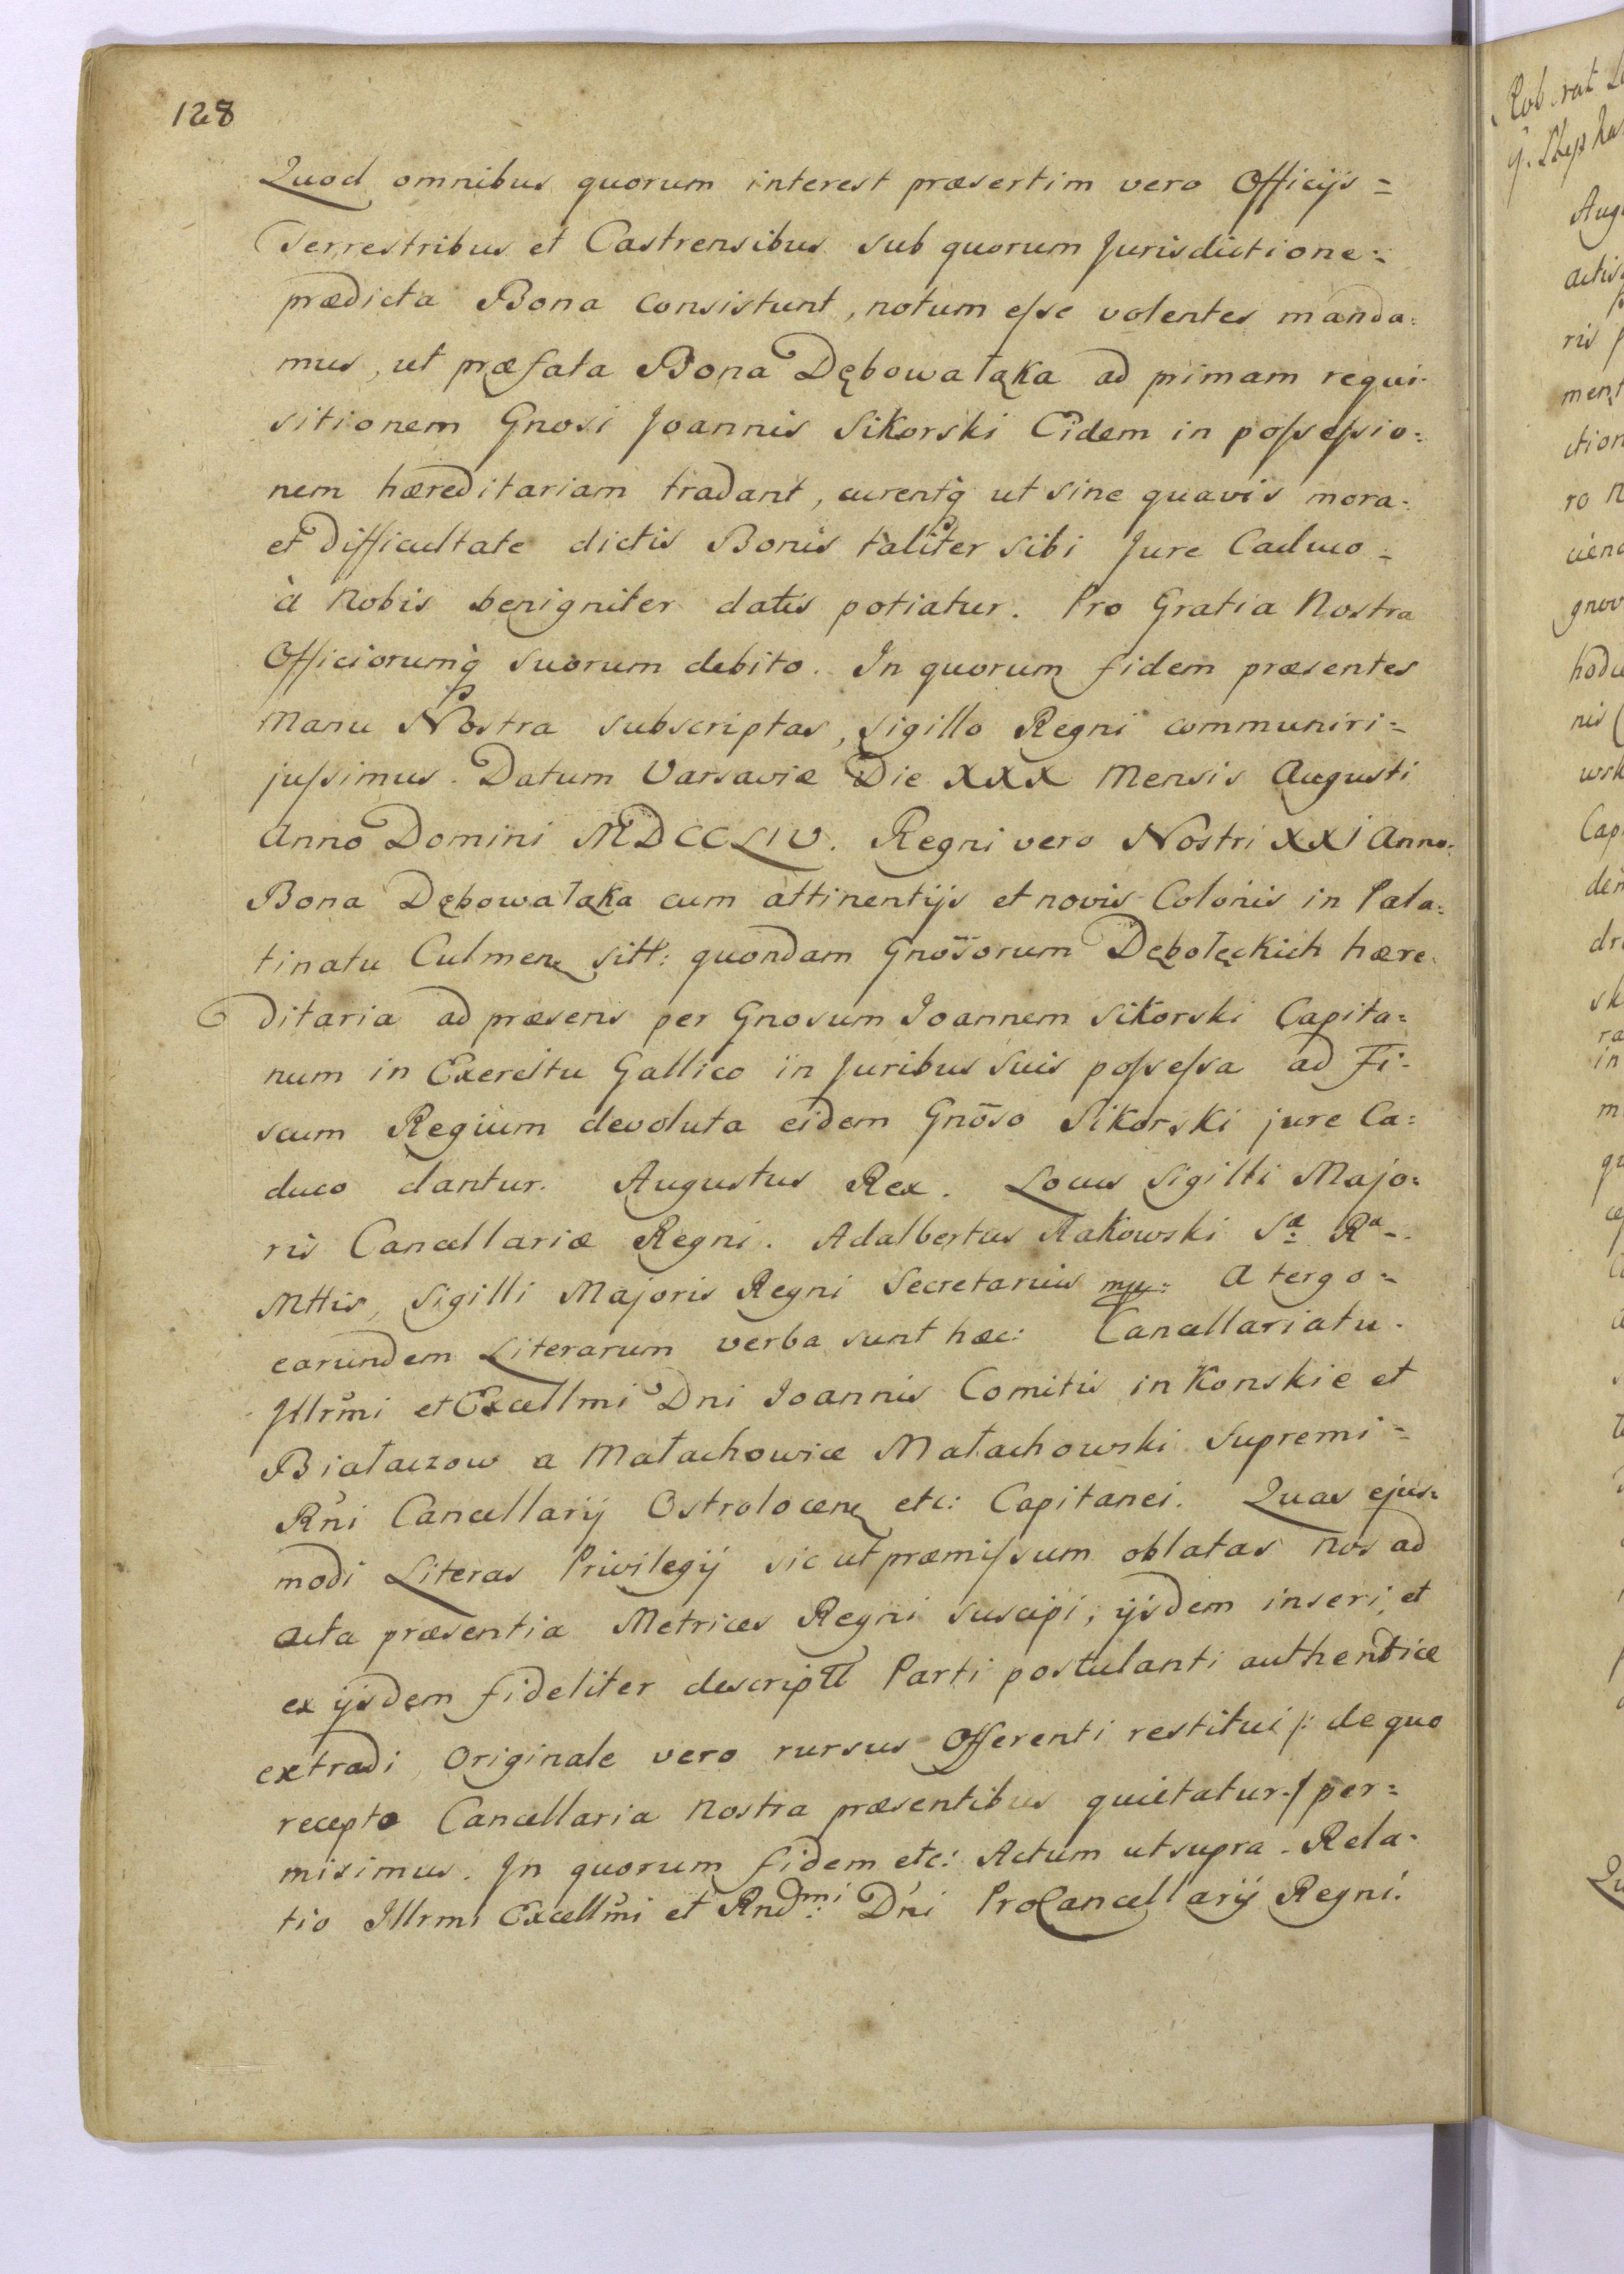 128
Quod omnibus quorum interest præsertim vero Officijs =
Terrestribus et Castrensibus sub quorum Jurisdictione =
prædicta Bona consistunt, notum eſse volentes manda:
mus, ut præfata Bona Dębowałąka ad primam requi-
sitionem Gnosi Joannis Sikorski Eidem in poſseſsio:
nem hæreditariam tradant, curentq̀ ut sine quavis mora:
et Difficultate dictis Bonis taliter sibi Jure Caduco =
à Nobis benigniter datis potiatur. Pro Gratia Nostra
Officiorumq̀ suorum debito. In quorum fidem præsentes
Manu Nostra subscriptas, Sigillo Regni communiri =
juſsimus. Datum Varsaviæ Die XXX Mensis Augusti
Anno Domini MDCCLIV. Regni vero Nostri XXI Anno.
Bona Dębowałąka cum attinentijs et novis Colonis in Pala:
tinatu Culmen sitt: quondam Gnōsorum Dębołęckich hære.
ditaria ad præsens per Gnosum Joannem Sikorski Capita:
num in Exercitu Gallico in Juribus suis poſseſsa ad Fi:
scum Regium devoluta eidem Gnōso Sikorski jure Ca:
duco dantur. Augustus Rex. Locus Sigilli Majo:
ris Cancellariæ Regni. Adalbertus Rakowski Sæ Ræ
Mttis, Sigilli Majoris Regni Secretarius mp: A tergo =
earundem Literarum verba sunt hæc: Cancellariatu.
Jllrm̃i et Excellmi Dni Joannis Comitis in Konskie et
Białaczow a Małachowice Małachowski Supremi =
Rni Cancellarij Ostrolocen etc: Capitanei. Quas ejus:
modi Literas Privilegij sic ut præmiſsum oblatas Nos ad
Acta præsentia Metrices Regni suscipi, ijsdem inseri, et
ex ijsdem fideliter descriptt Parti postulanti authentice
extradi, Originale vero rursus Offerenti restitui /: de quo
recepto Cancellaria Nostra præsentibus quietatur :/ per =
misimus. Jn quorum fidem etc: Actum ut supra. Rela:
tio Jllrmi Excellm̃i et Rndmi: Dni ProCancellarij Regni.